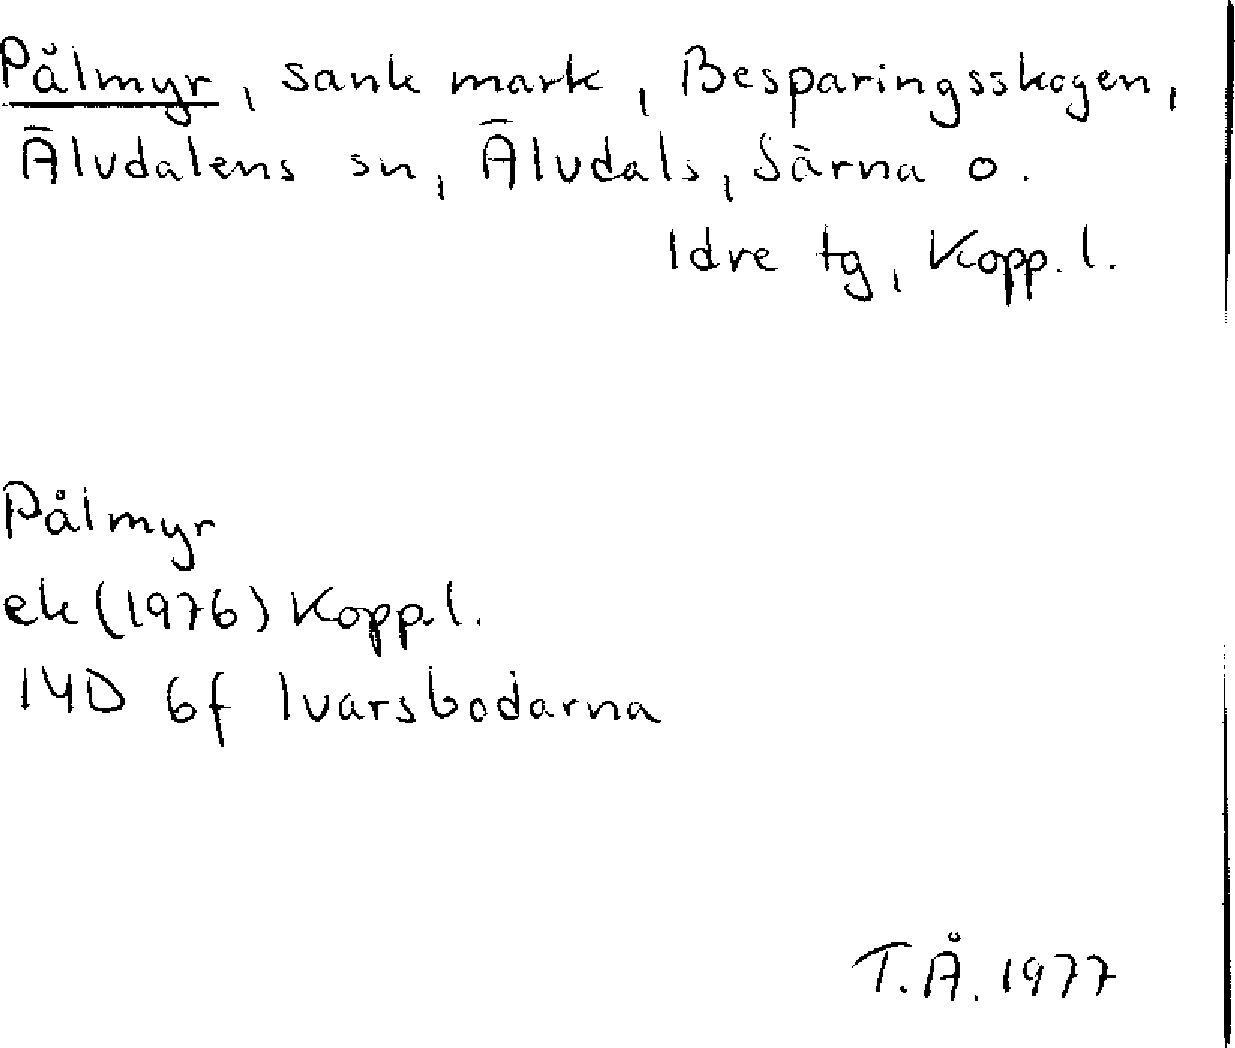 Pålmyr, sank mark, Besparingsskogen,
Älvdalens sn, Älvdals, Särna o.
Idre tg, Kopp. l.
Pålmyr
ek (1976) Kopp. l.
14D 6f Ivarsbodarna
T.Å. 1977